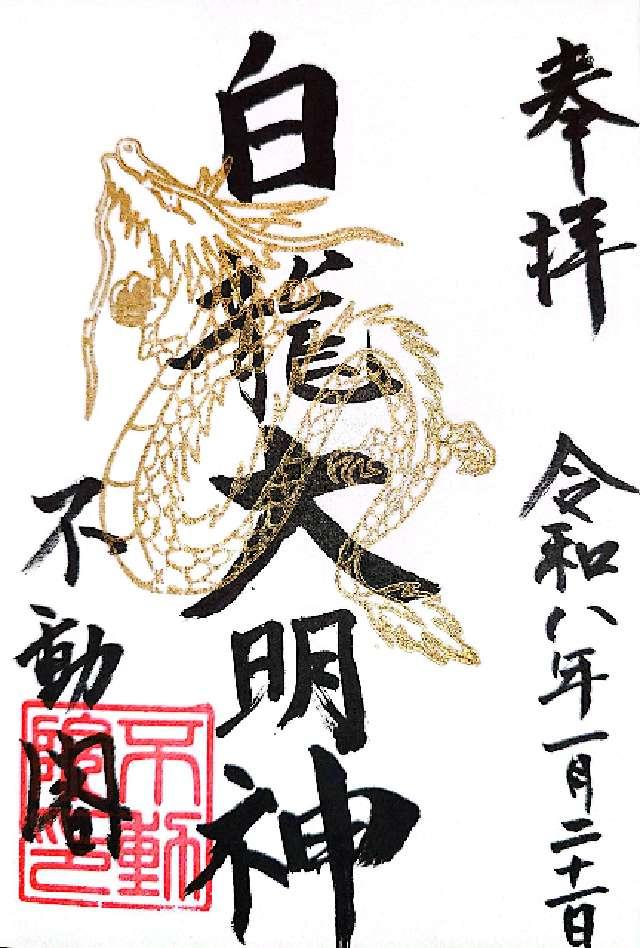 奉拝
令和八年一月二十一日
白龍大明神
不動閣
不動
院印